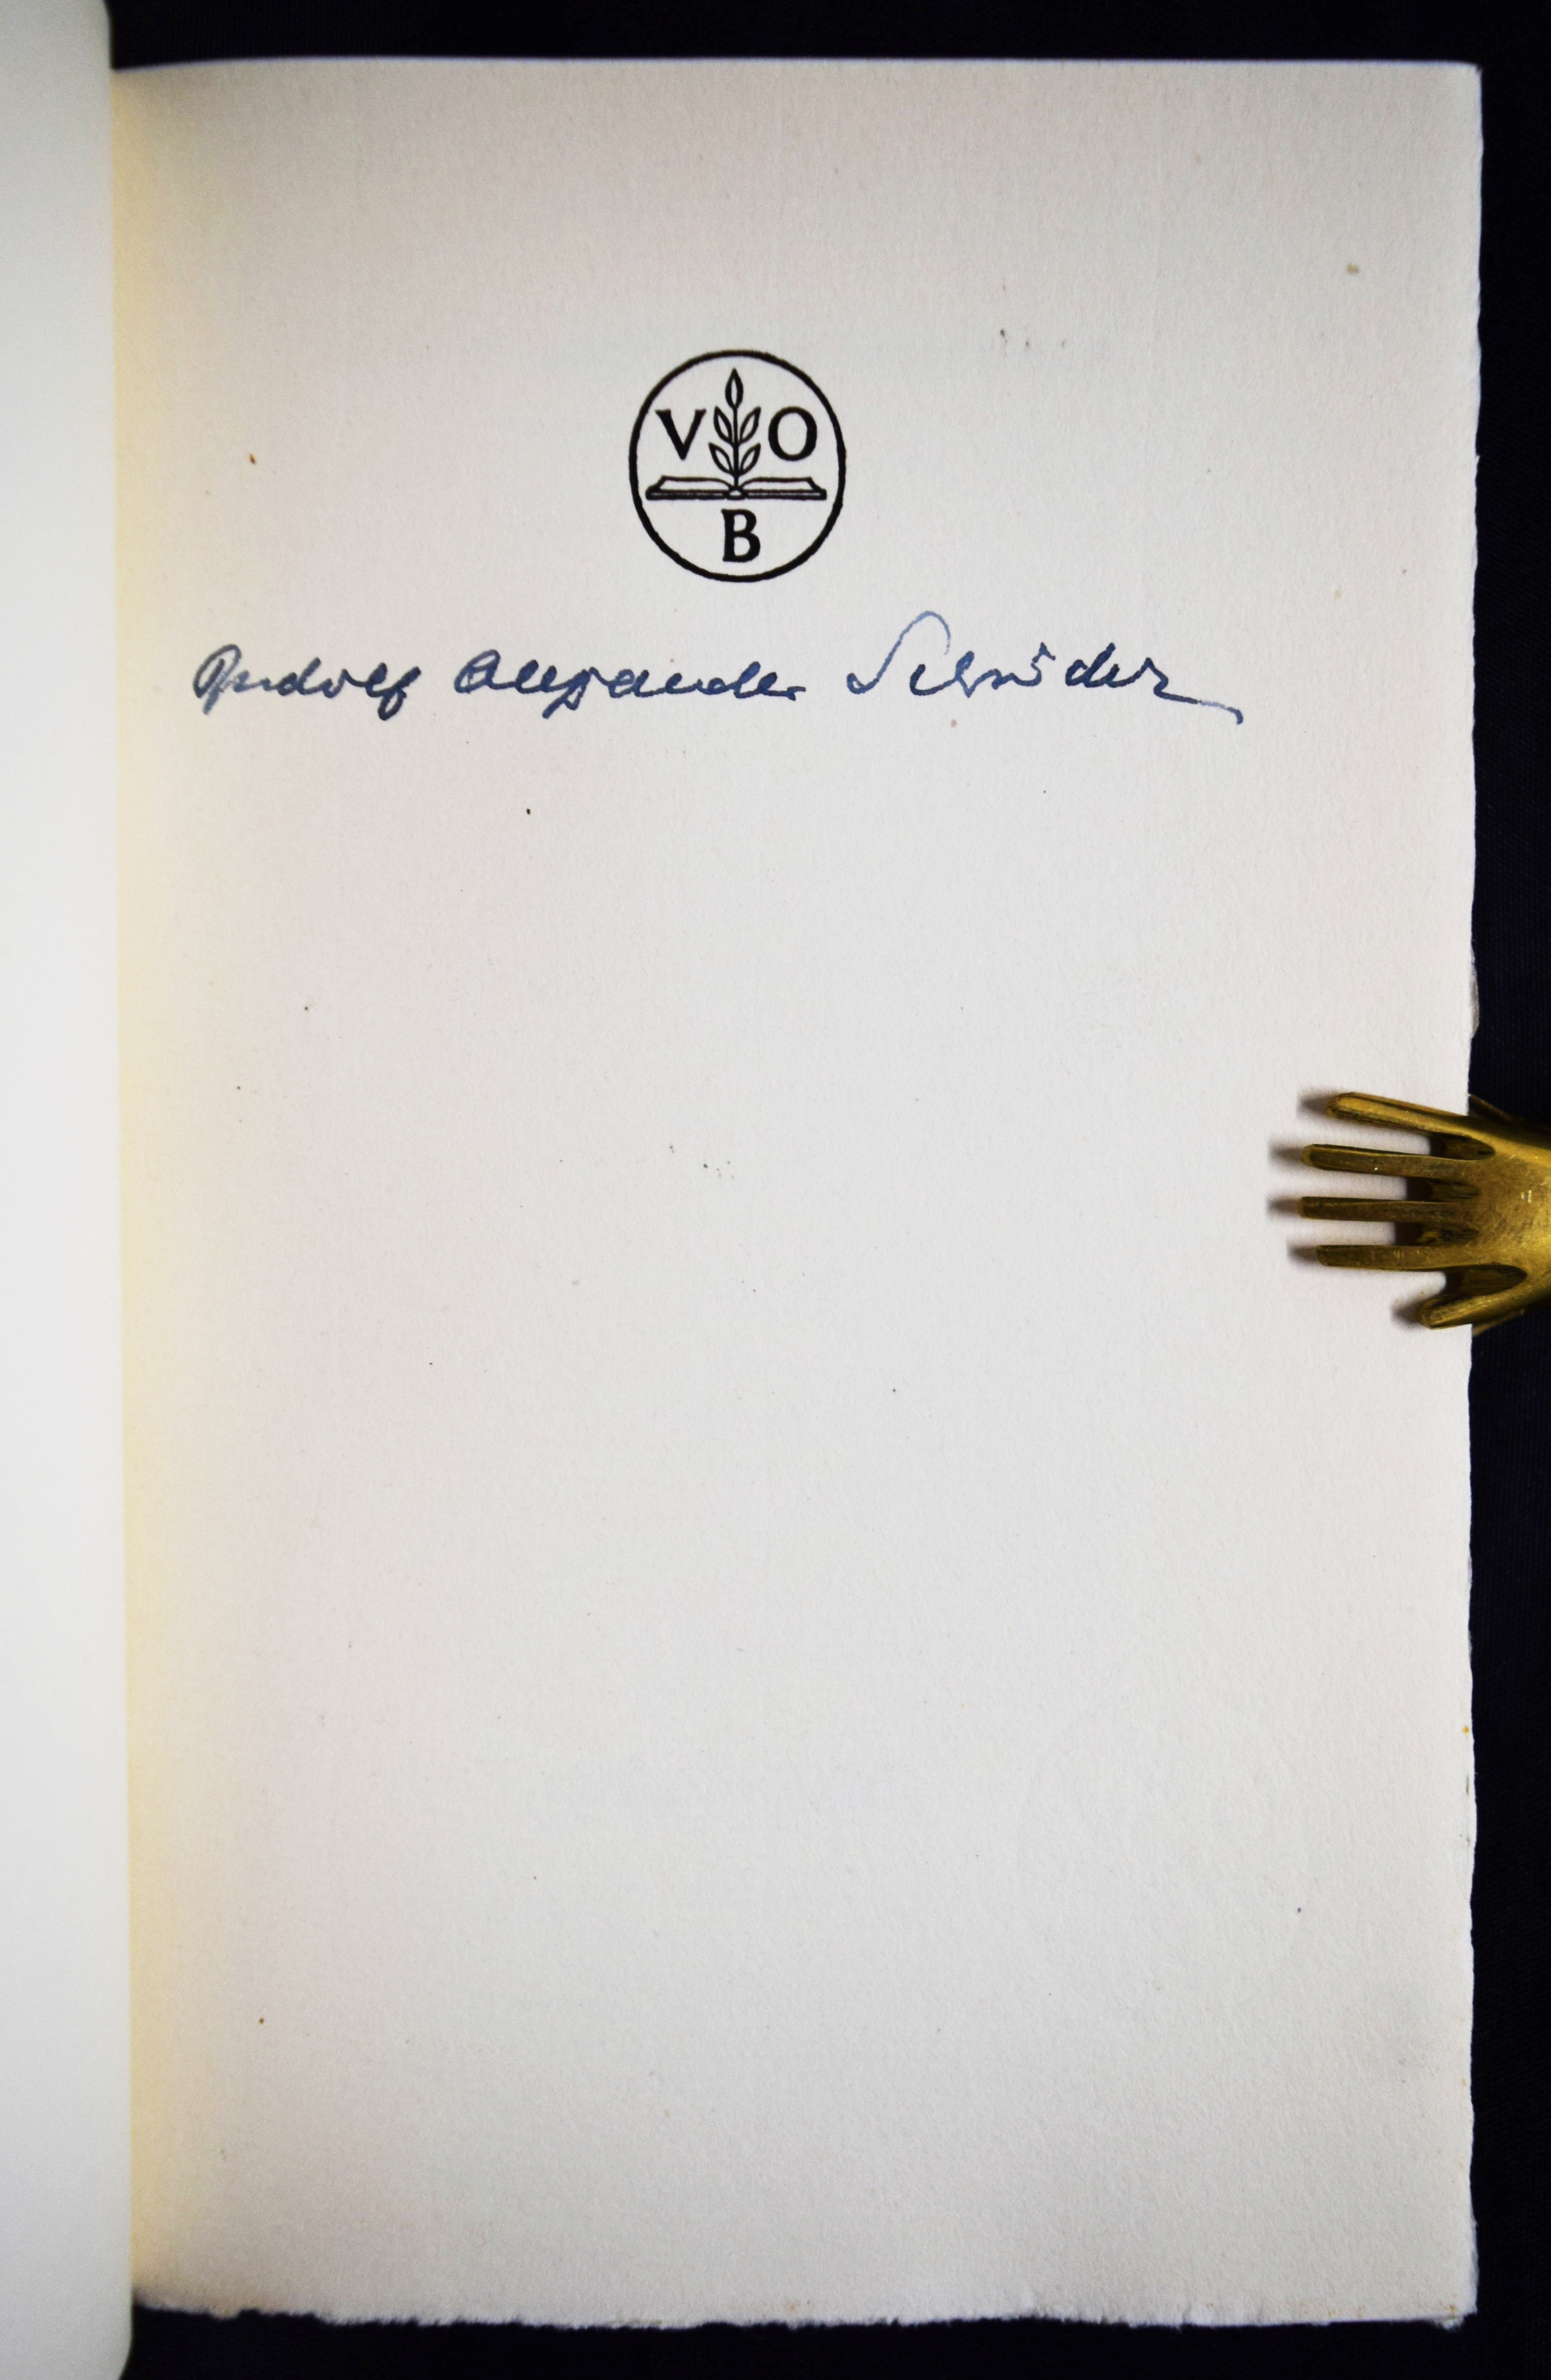 V O
B
Rudolf Alexander Schröder